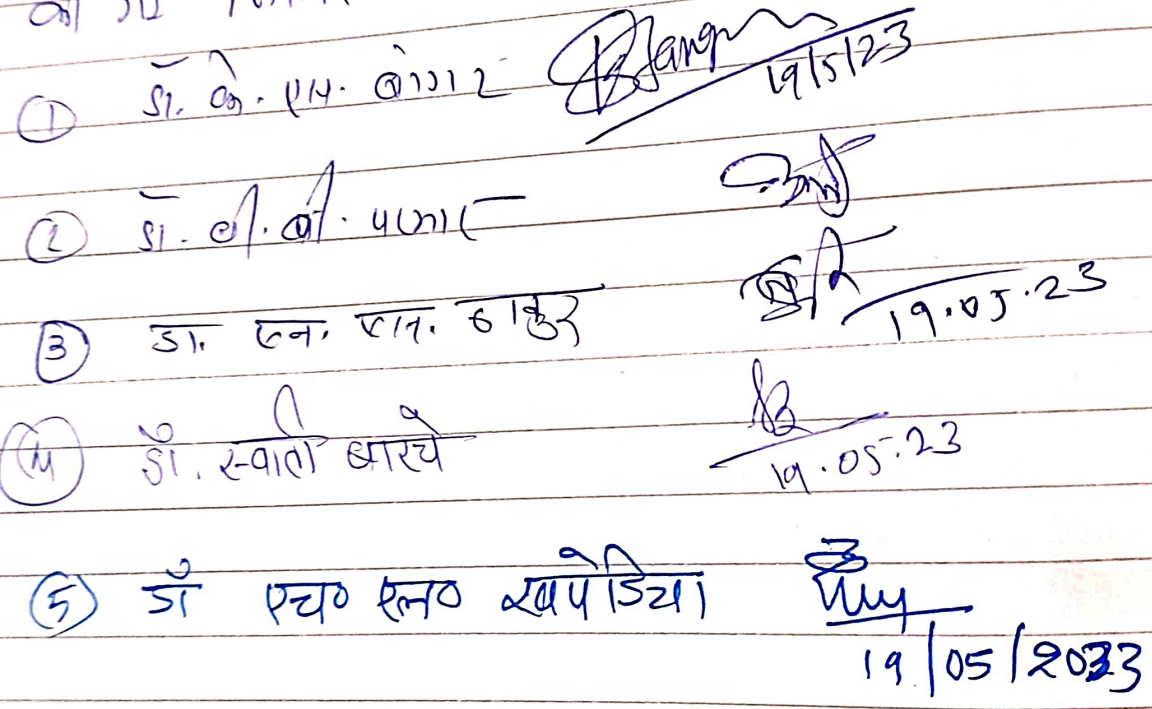 ① डॉ. के. एम. बांगर 19/5/23
② डॉ. वी. बी. परमार
③ डा. एन. एल. ठाकुर 19.05.23
④ डॉ. स्वाती बारचे 19.05.23
⑤ डॉ एच० एल० खपेडिया
19/05/2023